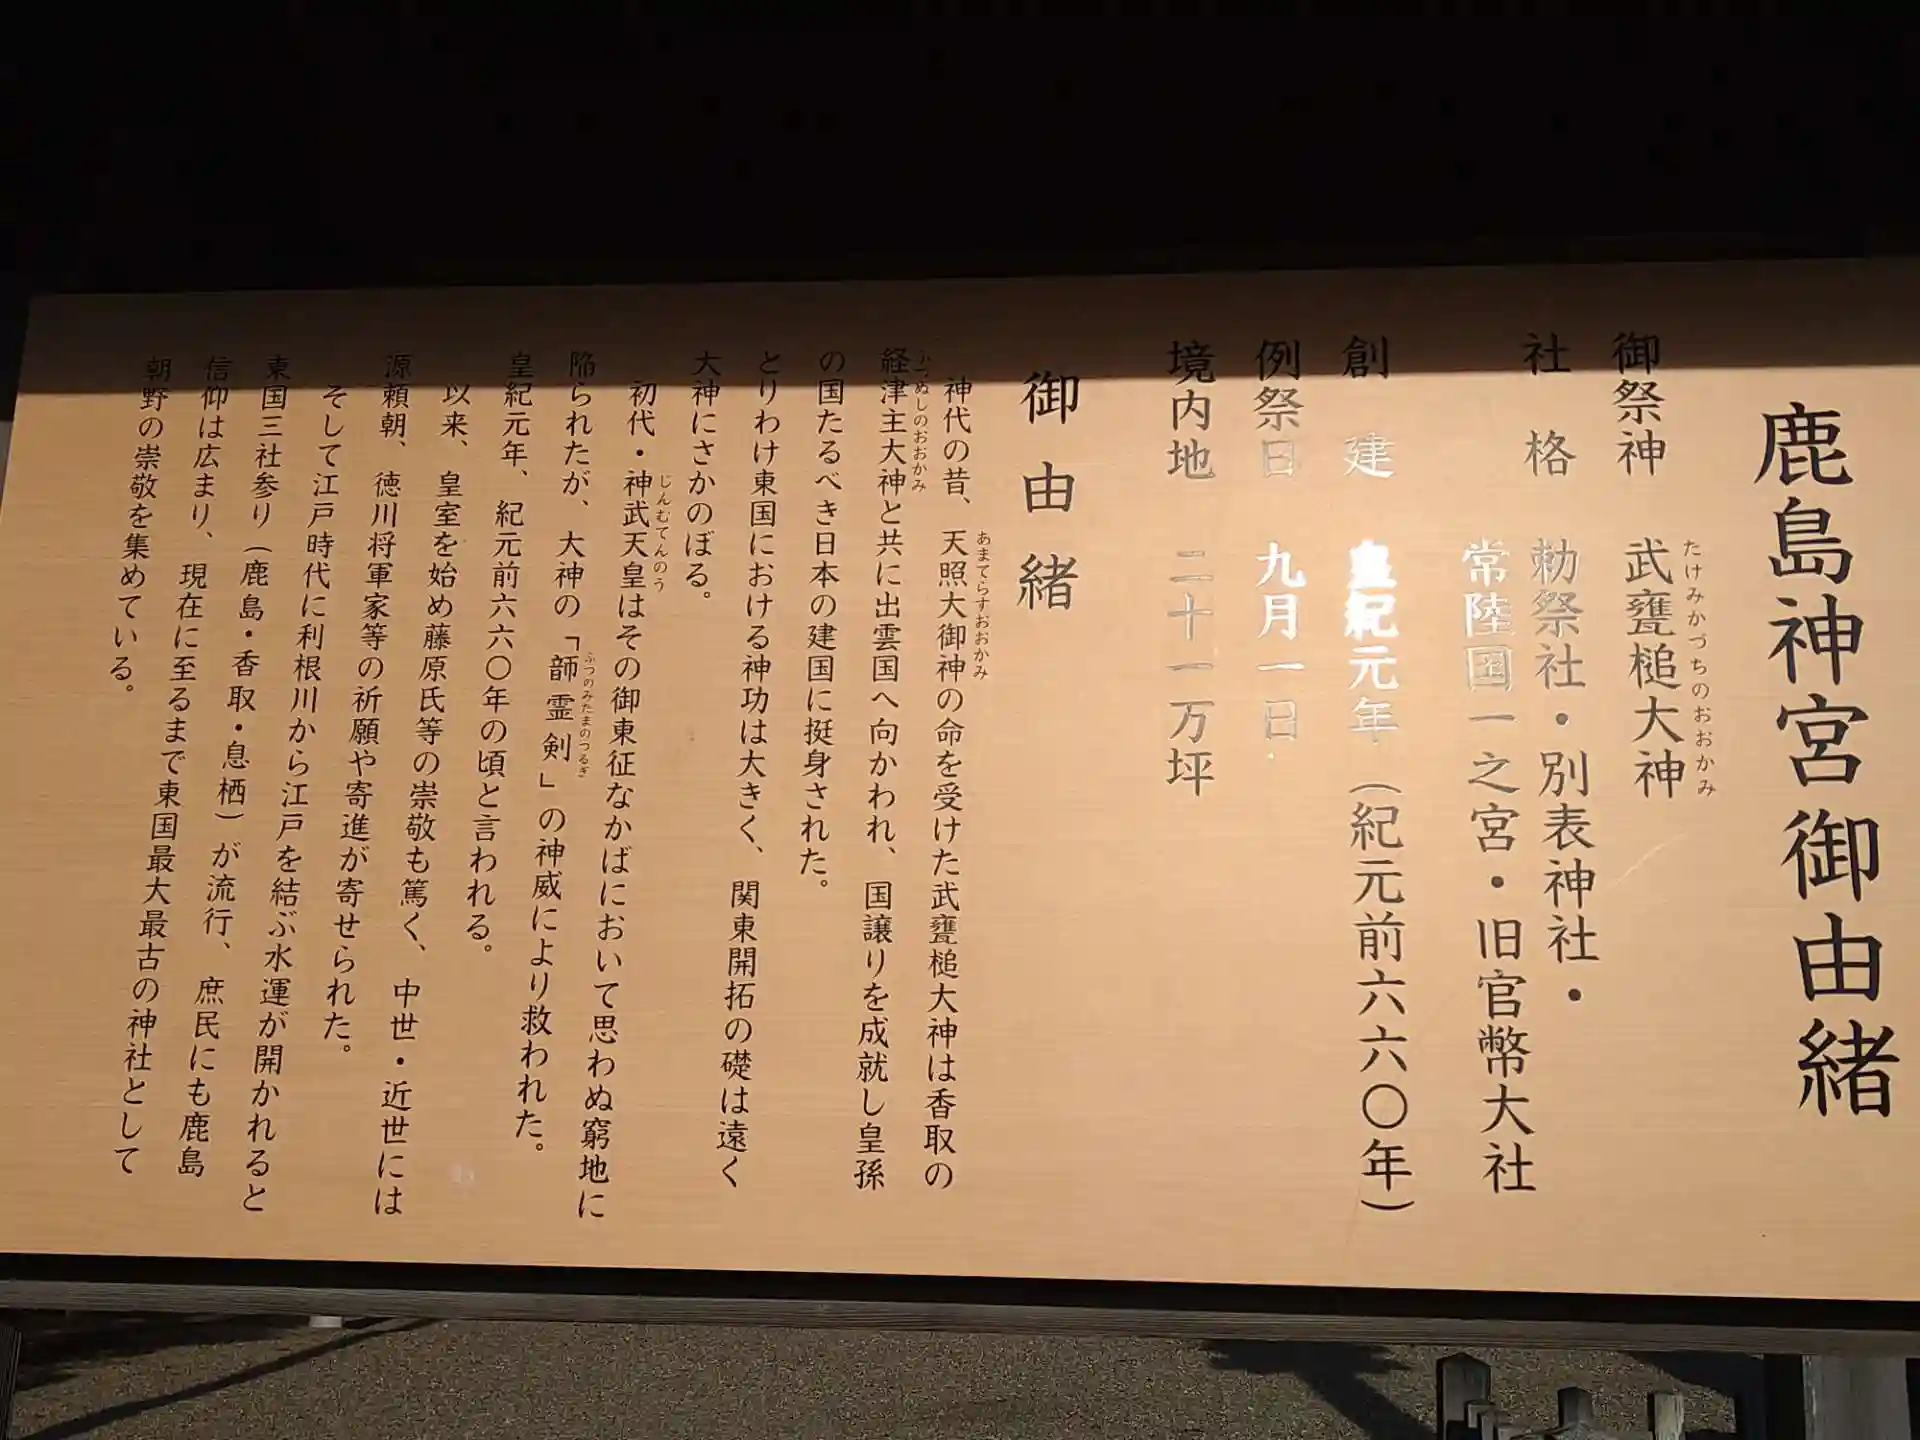 鹿島神宮御由緒
御祭神　武甕槌大神
たけみかづちのおおかみ
社　格　勅祭社・別表神社・
常陸国一之宮・旧官幣大社
創　建　皇紀元年（紀元前六六〇年）
例祭日　九月一日
境内地　二十一万坪
御由緒
神代の昔、天照大御神の命を受けた武甕槌大神は香取の
あまてらすおおかみ
経津主大神と共に出雲国へ向かわれ、国譲りを成就し皇孫
ふつぬしのおおかみ
の国たるべき日本の建国に挺身された。
とりわけ東国における神功は大きく、関東開拓の礎は遠く
大神にさかのぼる。
初代・神武天皇はその御東征なかばにおいて思わぬ窮地に
じんむてんのう
陥られたが、大神の「韴霊剣」の神威により救われた。
ふつのみたまのつるぎ
皇紀元年、紀元前六六〇年の頃と言われる。
以来、皇室を始め藤原氏等の崇敬も篤く、中世・近世には
源頼朝、徳川将軍家等の祈願や寄進が寄せられた。
そして江戸時代に利根川から江戸を結ぶ水運が開かれると
東国三社参り（鹿島・香取・息栖）が流行、庶民にも鹿島
信仰は広まり、現在に至るまで東国最大最古の神社として
朝野の崇敬を集めている。